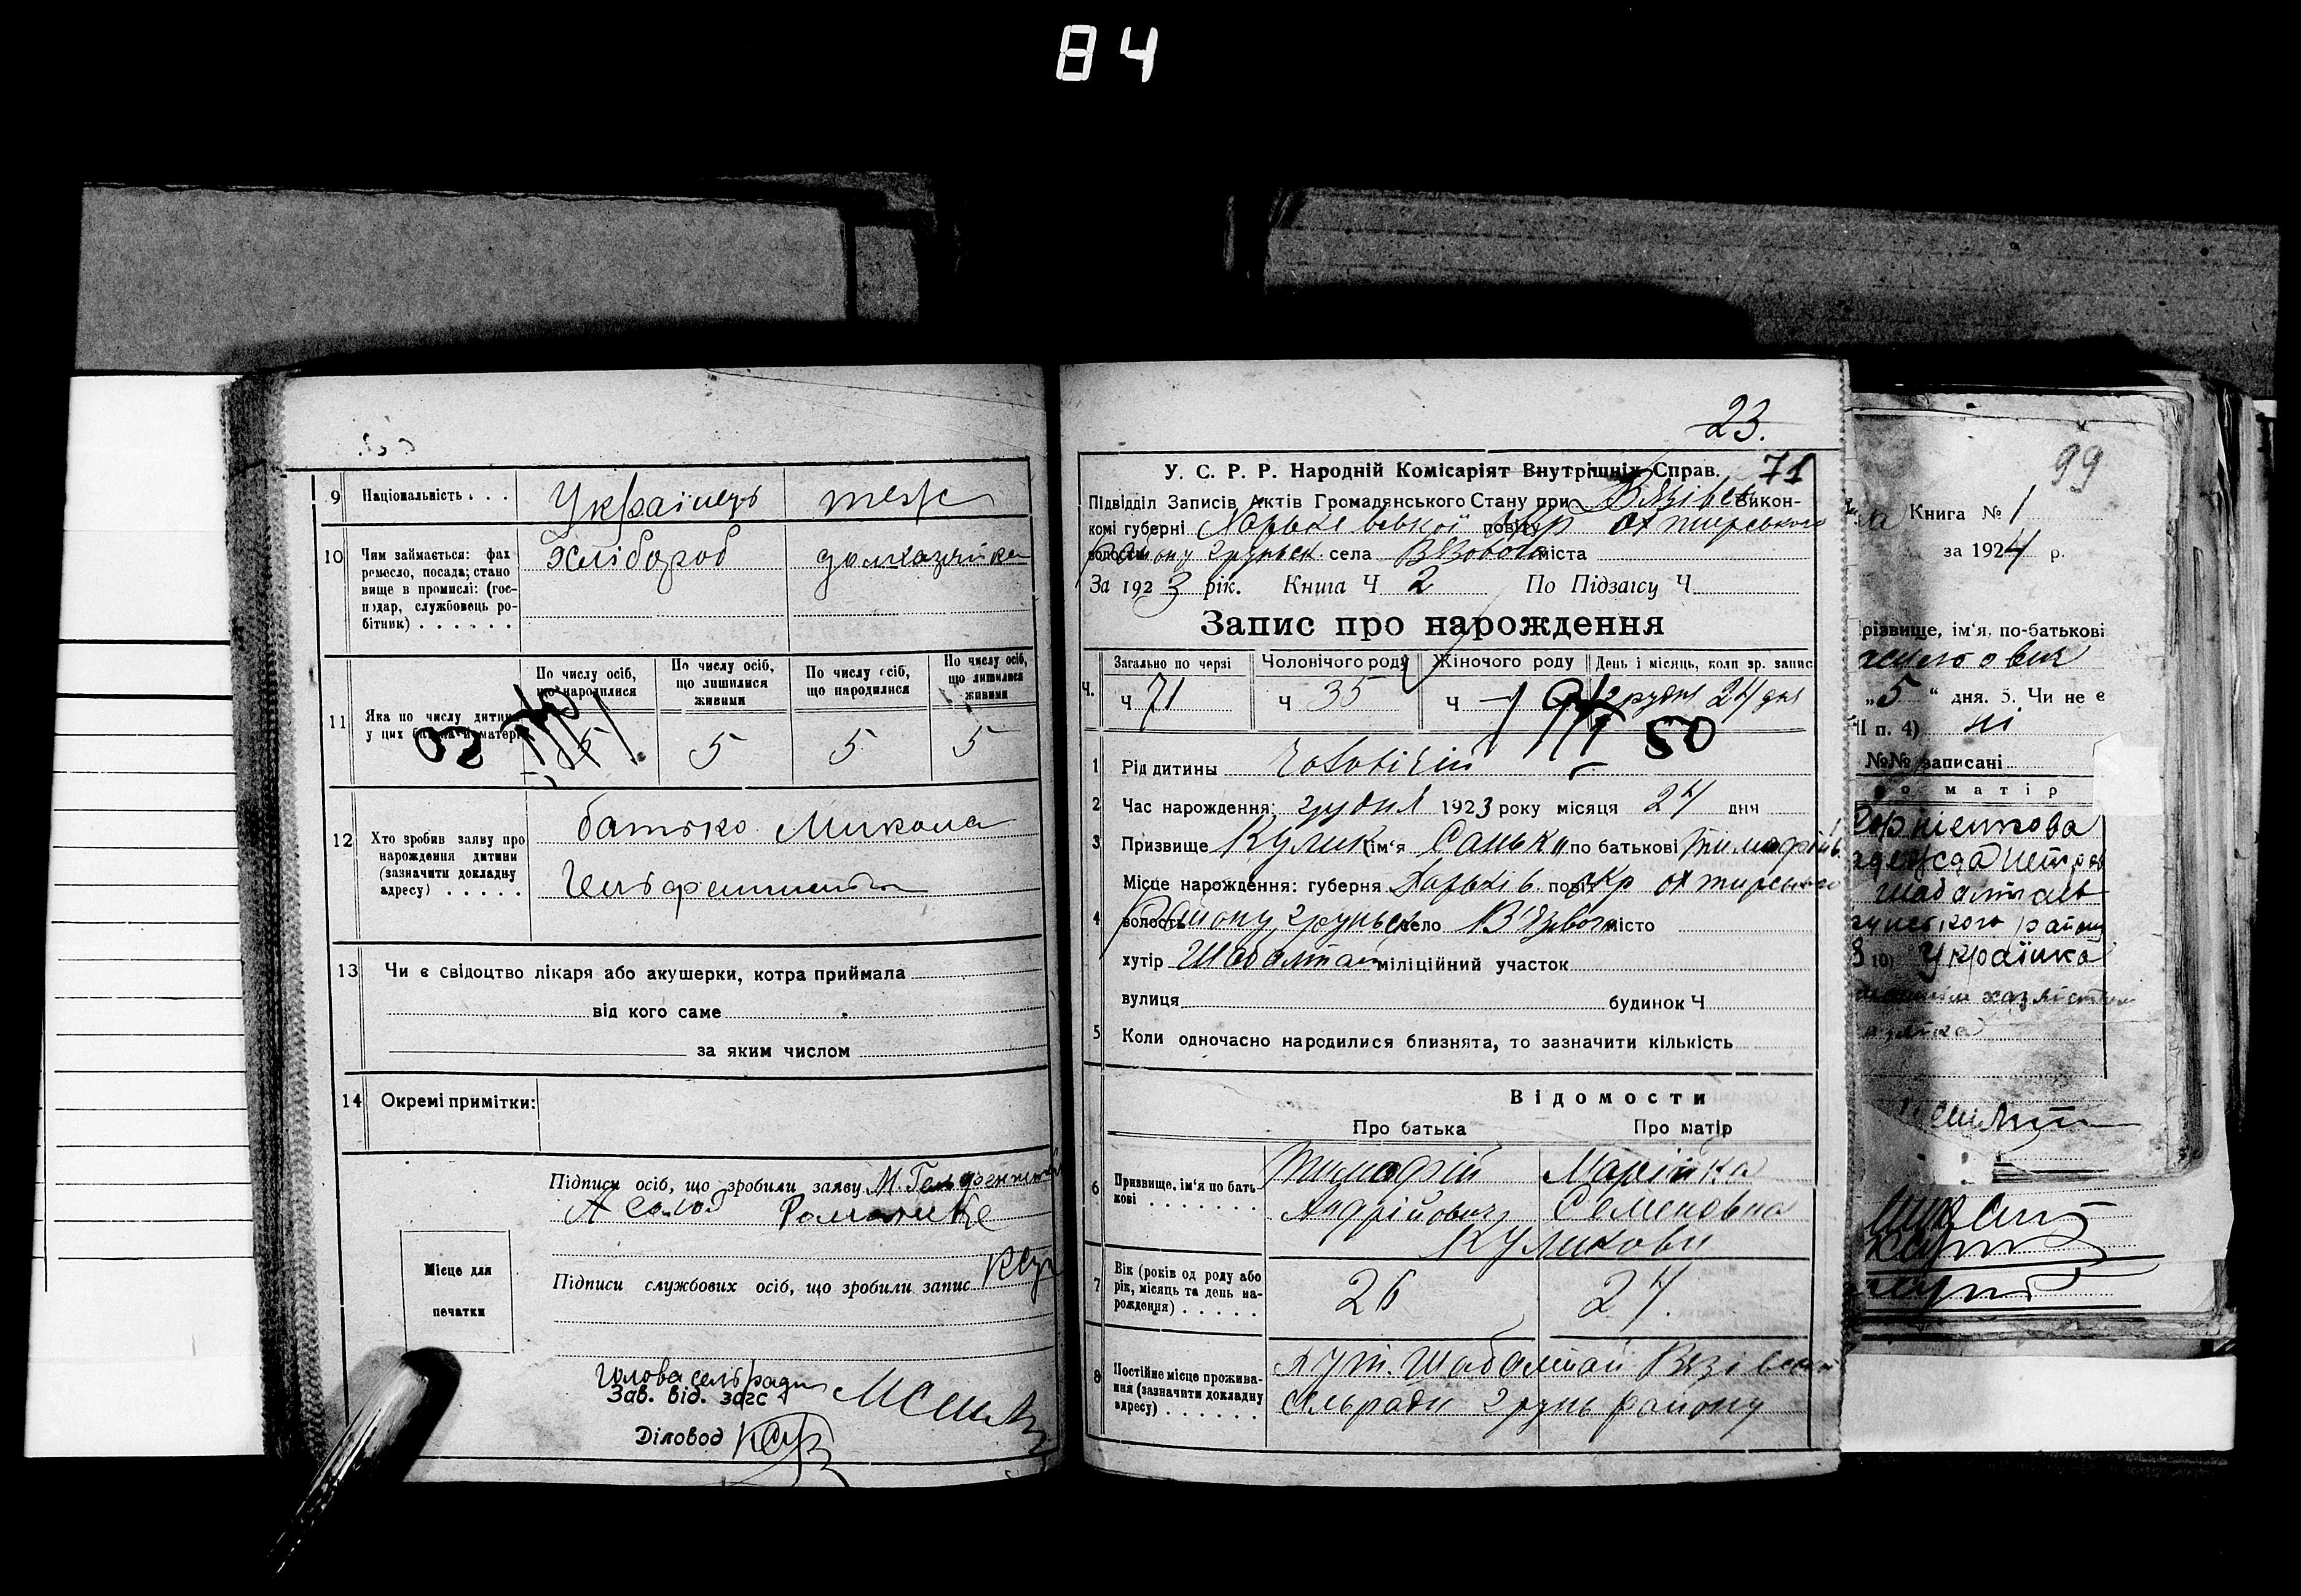 84
9 Національність . . .
Українець теж
10 Чим займається: фах
ремесло, посада; стано
вище в промислі: (гос-
подар, службовець ро-
бітник) . . . . . .
Хлібороб домхазяйка
По числу осіб,
що народилися
По числу осіб,
що лишилися
живими
По числу осіб,
що народилися
По числу осіб,
що лишилися
живими
11 Яка по числу дитина
у цих батька й матері
5 5 5 5
12 Хто зробив заяву про
нарождення дитини
(зазначити докладну
адресу) . . . . .
батько Микола
13 Чи є свідоцтво лікаря або акушерки, котра приймала
від кого саме
за яким числом
14 Окремі примітки:
Підписи осіб, що зробили заяву М.
Місце для
печатки
Підписи службових осіб, що зробили запис
Голова сельради
Зав. від. загс
Діловод
23.
У. С. Р. Р. Народній Комісаріят Внутрішніх Справ. 71
Підвідділ Записів Актів Громадянського Стану при Вязівск. Викон-
комі губерні Харьківської повіту окр Охтирського
волости району Груньск. села Вязового міста
За 1923 рік. Книга Ч 2 По Підзагсу Ч
Запис про нарождення
Ч. Загально по черзі Чоловічого роду Жіночого роду День і місяць, коли зр. запис
Ч 71 Ч 35 Ч — грудня 24 дня
50
1 Рід дитини чоловічий
2 Час нарождення: грудня 1923 року місяця 24 дня
3 Призвище Кулик ім'я Санько по батькові Тимофійов.
4 Місце нарождення: губерня Харьків. повіт окр Охтирського
волость району Груньск село В'язового місто
хутір Шабалтай міліційний участок
вулиця будинок Ч
5 Коли одночасно народилися близнята, то зазначити кількість
Відомости
Про батька Про матір
6 Призвище, ім'я по бать-
кові . . . . . . .
Тимофій Марійка
Андрійович Семеновна
Куликови
7 Вік (років од роду або
рік, місяць та день на-
рождення) . . . . .
26 24.
8 Постійне місце прожива-
ння (зазначити докладну
адресу) . . . . . .
Хут. Шабалтай Вязівської
сільради Грунь району
99
Книга № 1
за 1924 р.
різвище, ім'я, по-батькові
„5“ дня. 5. Чи не є
II п. 4) ні
№№ записані
о матір
Корнієнкова
Шабалтаєв
10) Українка